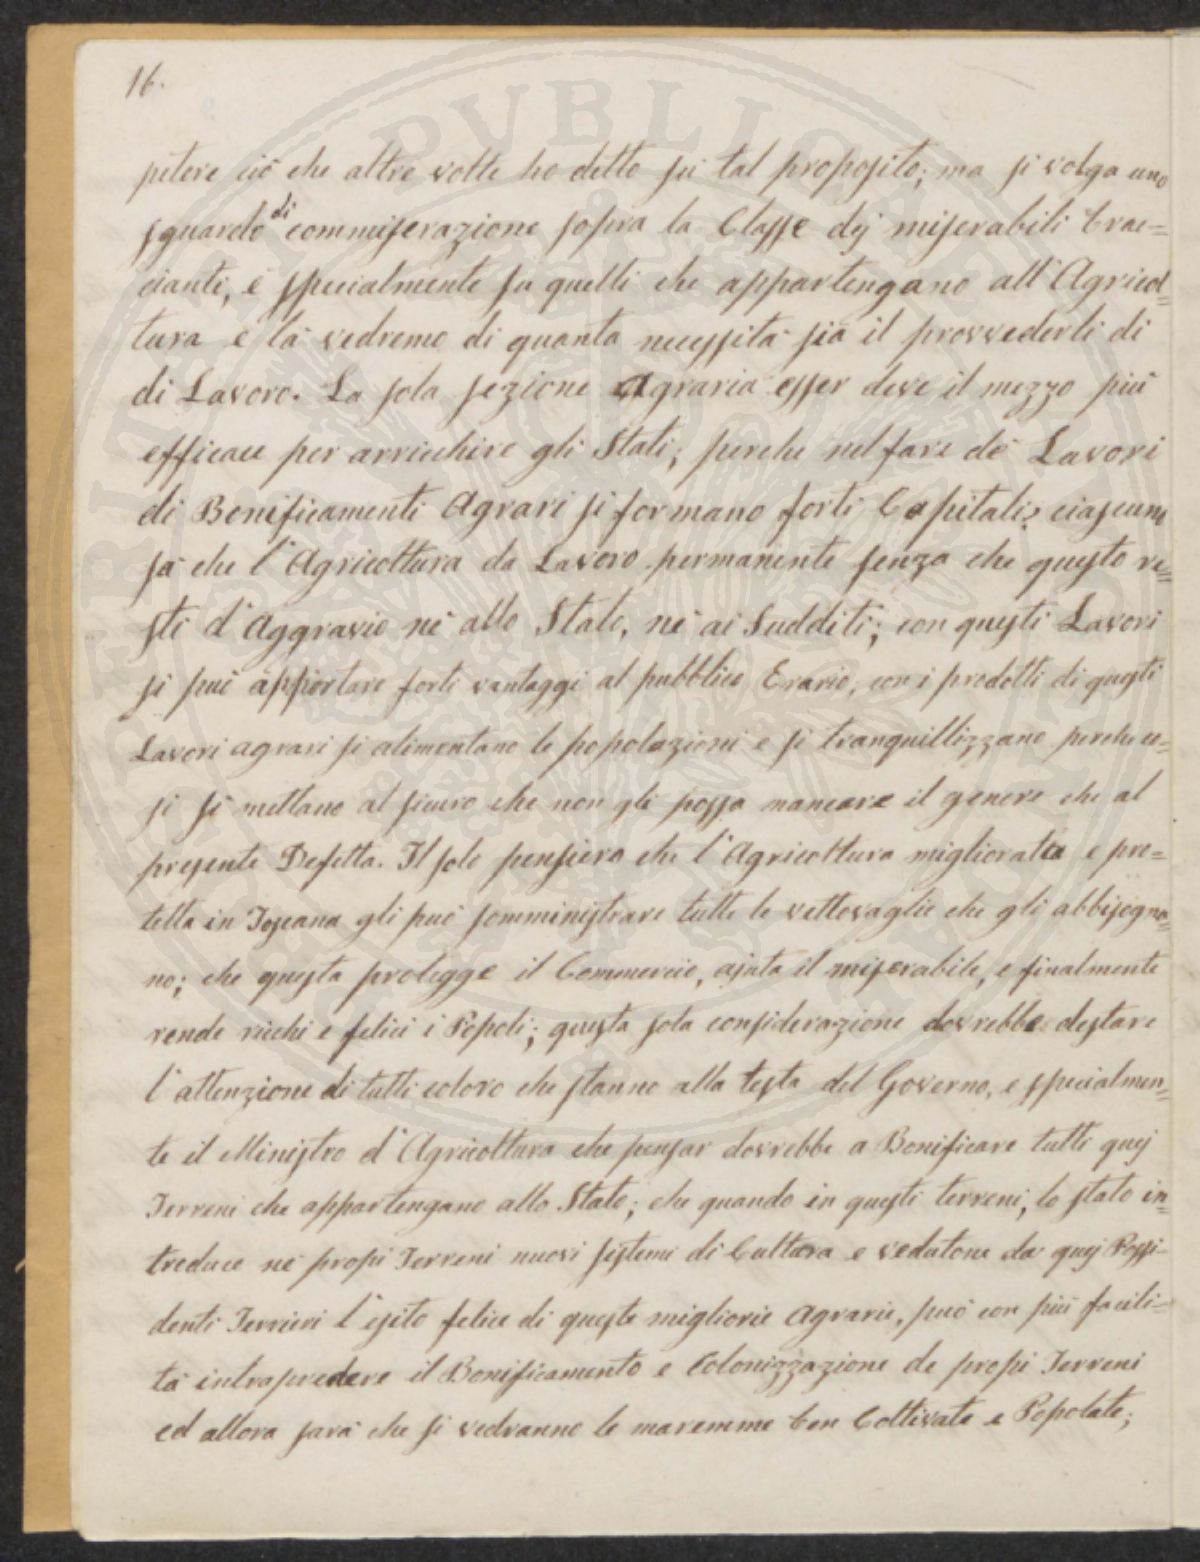 16.
petere ciò che altre volte ho detto su tal proposito; ma si volga uno
sguardo di commiserazione sopra la Classe dej miserabili brac=
cianti, e specialmente su quelli che appartengano all'Agricol=
tura e là vedremo di quanta necessità sia il provvederli di
di Lavoro. La sola sezione Agraria esser deve il mezzo più
efficace per arricchire gli Stati; perche nel fare de Lavori
di Bonificamenti Agrari si formano forti Capitali; ciascuno
sà che l'Agricoltura da Lavoro permanente senza che questo re=
sti d'Aggravio nè allo Stato, nè ai Sudditi; con questi Lavori
si può apportare forti vantaggi al pubblico Erario, con i prodotti di questi
Lavori agrari si alimentano le popolazioni e si tranquillizzano perche co=
si si mettano al sicuro che non gli possa mancare il genere che al
presente Difetta. Il solo pensiero che l'Agricoltura migliorata e pro=
tetta in Toscana gli può somministrare tutte le vettovaglie che gli abbisogna=
no; che questa protegge il Commercio, ajuta il miserabile, e finalmente
rende ricchi e felici i Popoli; questa sola considerazione dovrebbe destare
l'attenzione di tutti coloro che stanno alla testa del Governo, e specialmen=
te il Ministro d'Agricoltura che pensar dovrebbe a Bonificare tutti quej
Terreni che appartengano allo Stato; che quando in questi terreni, lo stato in=
troduce nè propi Terreni nuovi sistemi di Cultura e vedutone da quej Possi=
denti Terrieri l'esito felice di queste migliorie Agrarie, può con più facili=
tà intrapredere il Bonificamento e Colonizzazione de propi Terreni
ed allora sarà che si vedranno le maremme ben Coltivate e Popolate;
PVBLICA